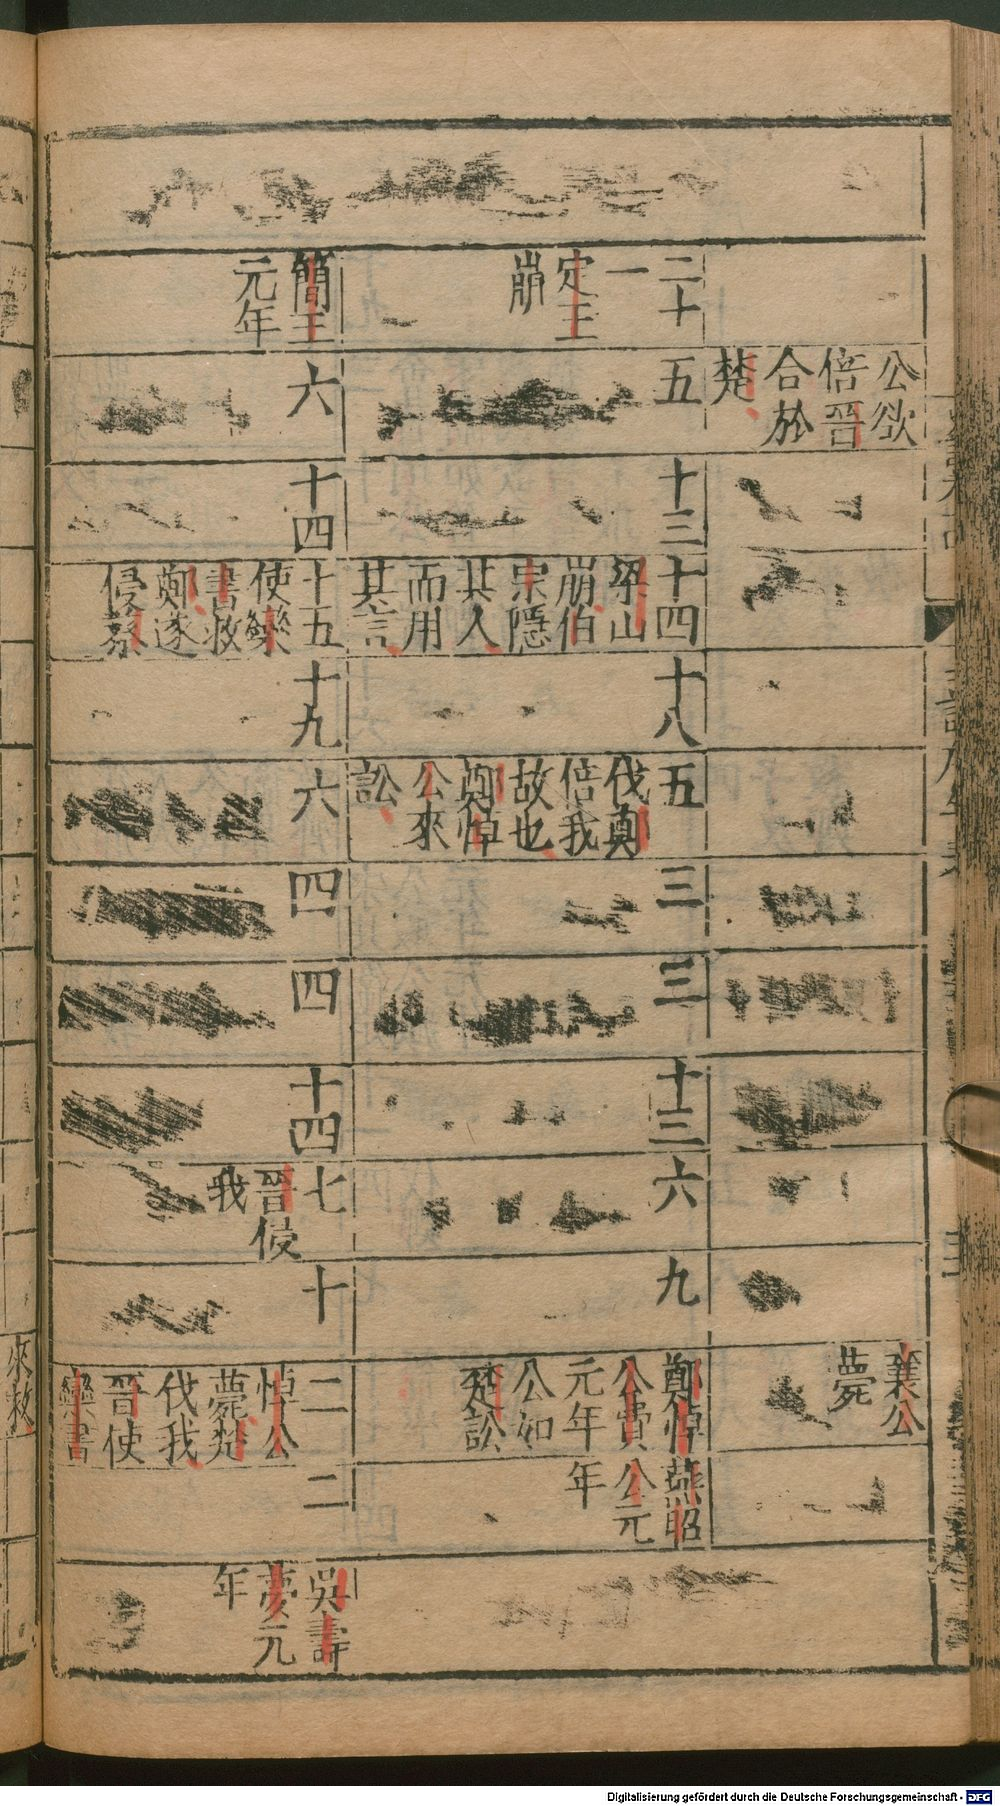 公欲
倍晉
合於
楚
襄公
薨
二十
一
定王
崩
五
十三
十四
梁山
崩伯
宗隱
其人
而用
其言
十八
五
伐鄭
倍我
故也
鄭悼
公來
訟
三
三
十三
六
九
鄭悼
公費
元年
公如
楚訟
燕昭
公元
年
簡王
元年
六
十四
十五
使欒
書救
鄭遂
侵蔡
十九
六
四
四
十四
七
晉侵
我
十
二
悼公
薨楚
伐我
晉使
欒書
二
吳壽
夢元
年
來救
Digitalisierung gefördert durch die Deutsche Forschungsgemeinschaft - DFG